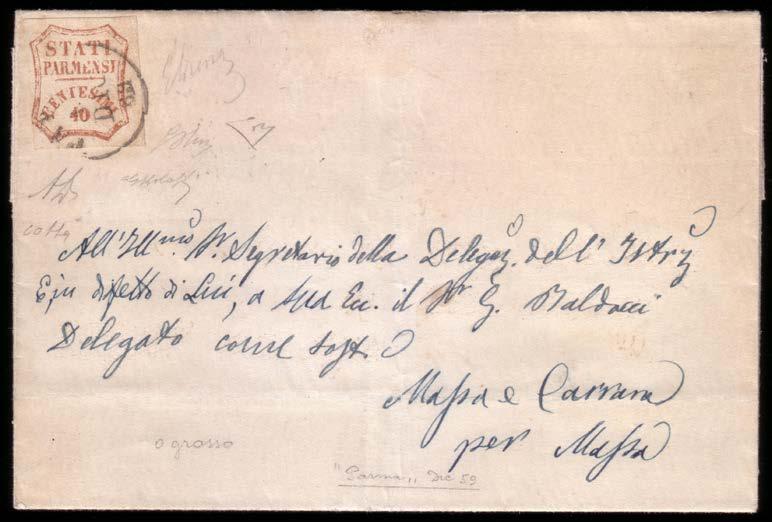 STATI
PARMENSI
CENTESIMI
40
DIC
59
cotta
All'Ill.mo Sr. Segretario della Delegaz. dell' Istruz
E, in difetto di Lui, a sua Ecc. il Sr G. Baldocci
Delegato come sopra
Massa e Carrara
per Massa
o grosso
"Parma,, Dic 59